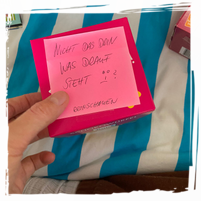 NICHT DAS DRIN
WAS DRAUF
STEHT
REINSCHAUEN